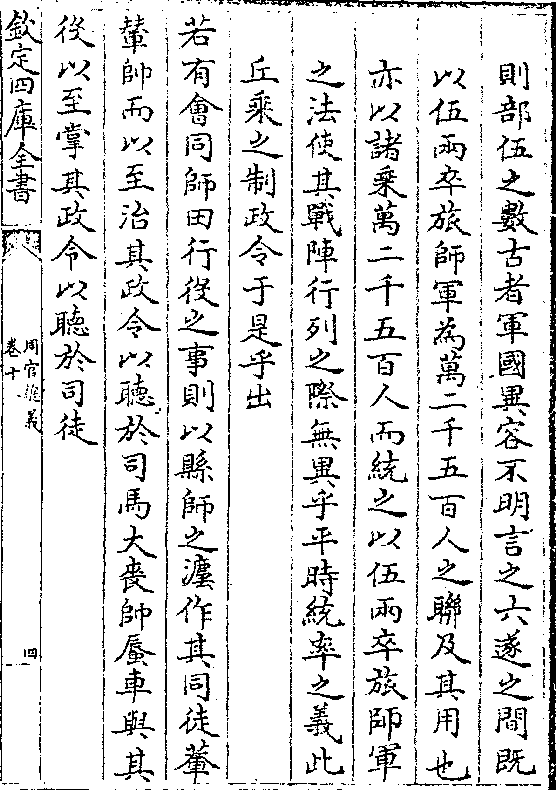 則部伍之數古者軍國異容不明言之六遂之間既
以伍兩卒旅師軍為萬二千五百人之聯及其用也
亦以諸乗萬二千五百人而統之以伍兩卒旅師軍
之法使其戰陣行列之際無異乎平時統率之義此
丘乗之制政令于是乎出
若有會同師田行役之事則以縣師之灋作其同徒輂
輦帥而以至治其政令以聽於司馬大喪帥蜃車與其
役以至掌其政令以聽於司徒
欽定四庫全書
周官緫義
卷十
四